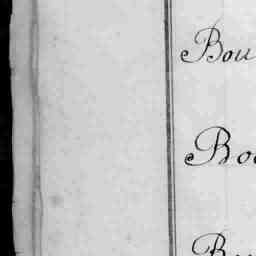 Bou
Boo